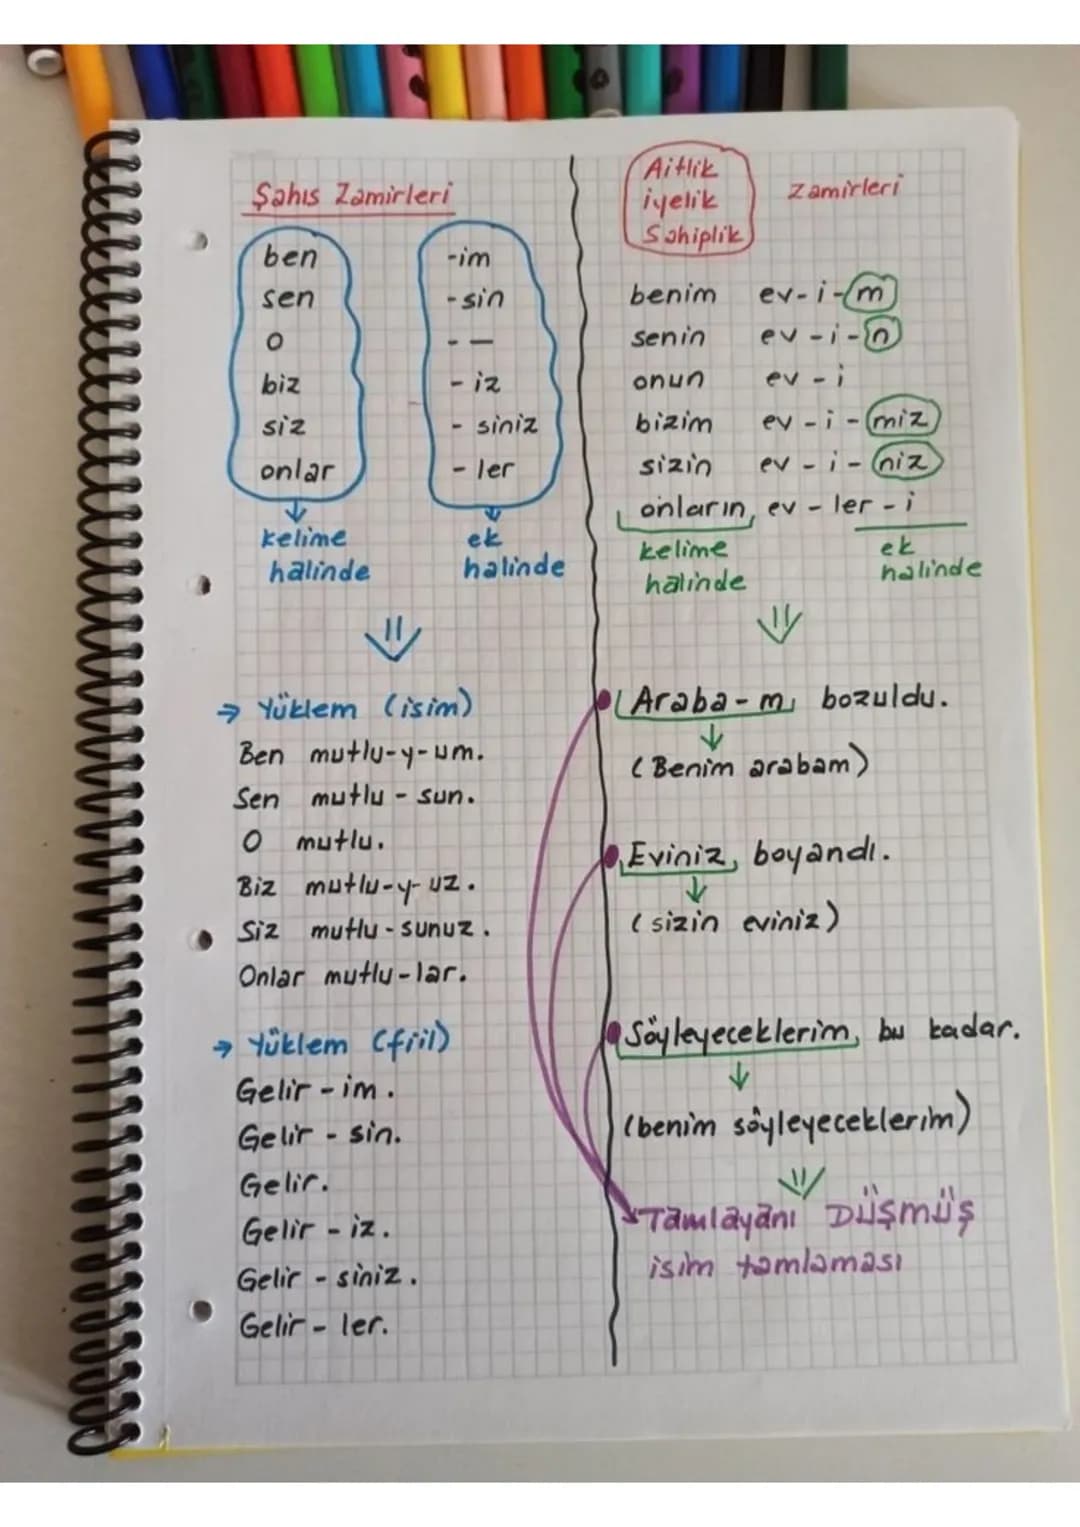 Şahıs Zamirleri
ben -im
sen -sin
o - —
biz - iz
siz - siniz
onlar - ler
kelime halinde
ek halinde
→ Yüklem (isim)
Ben mutlu-y-um.
Sen mutlu - sun.
O mutlu.
Biz mutlu-y-uz.
Siz mutlu - sunuz.
Onlar mutlu-lar.
→ Yüklem (fiil)
Gelir - im.
Gelir - sin.
Gelir.
Gelir - iz.
Gelir - siniz.
Gelir - ler.
Aitlik
iyelik
Sahiplik
Zamirleri
benim ev-i-m
senin ev-i-n
onun ev-i
bizim ev-i-miz
sizin ev-i-niz
onların ev-ler-i
kelime halinde
ek halinde
Araba-m bozuldu.
(Benim arabam)
Eviniz, boyandı.
(sizin eviniz)
Söyleyeceklerim, bu kadar.
(benim söyleyeceklerim)
Tamlayanı DÜŞMÜŞ
isim tamlaması